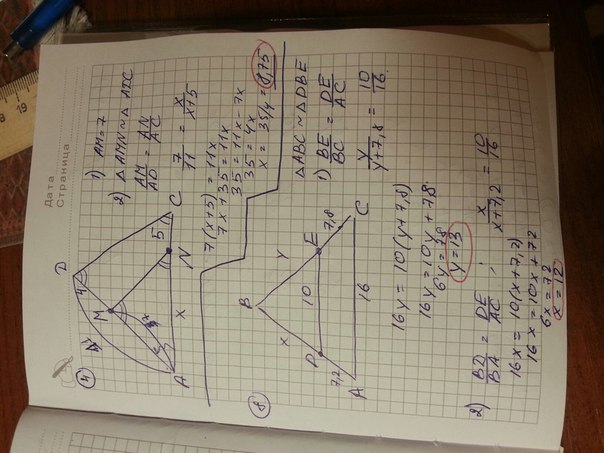 Дата
Страница
4
D
4
M
A
x
N
5
C
1) AM = 7
2) △ AMN ∾ △ ADC
AM/AD = AN/AC
7/11 = x/x+5
7(x+5) = 11x
7x+35 = 11x
35 = 11x - 7x
35 = 4x
x = 35/4 = 8,75
8
B
x
y
D
10
E
7,2
7,8
A
16
C
△ABC ∾ △DBE
1) BE/BC = DE/AC
y/y+7,8 = 10/16
16y = 10(y+7,8)
16y = 10y + 78
6y = 78
y = 13
2) BD/BA = DE/AC ; x/x+7,2 = 10/16
16x = 10(x+7,2)
16x = 10x + 72
6x = 72
x = 12